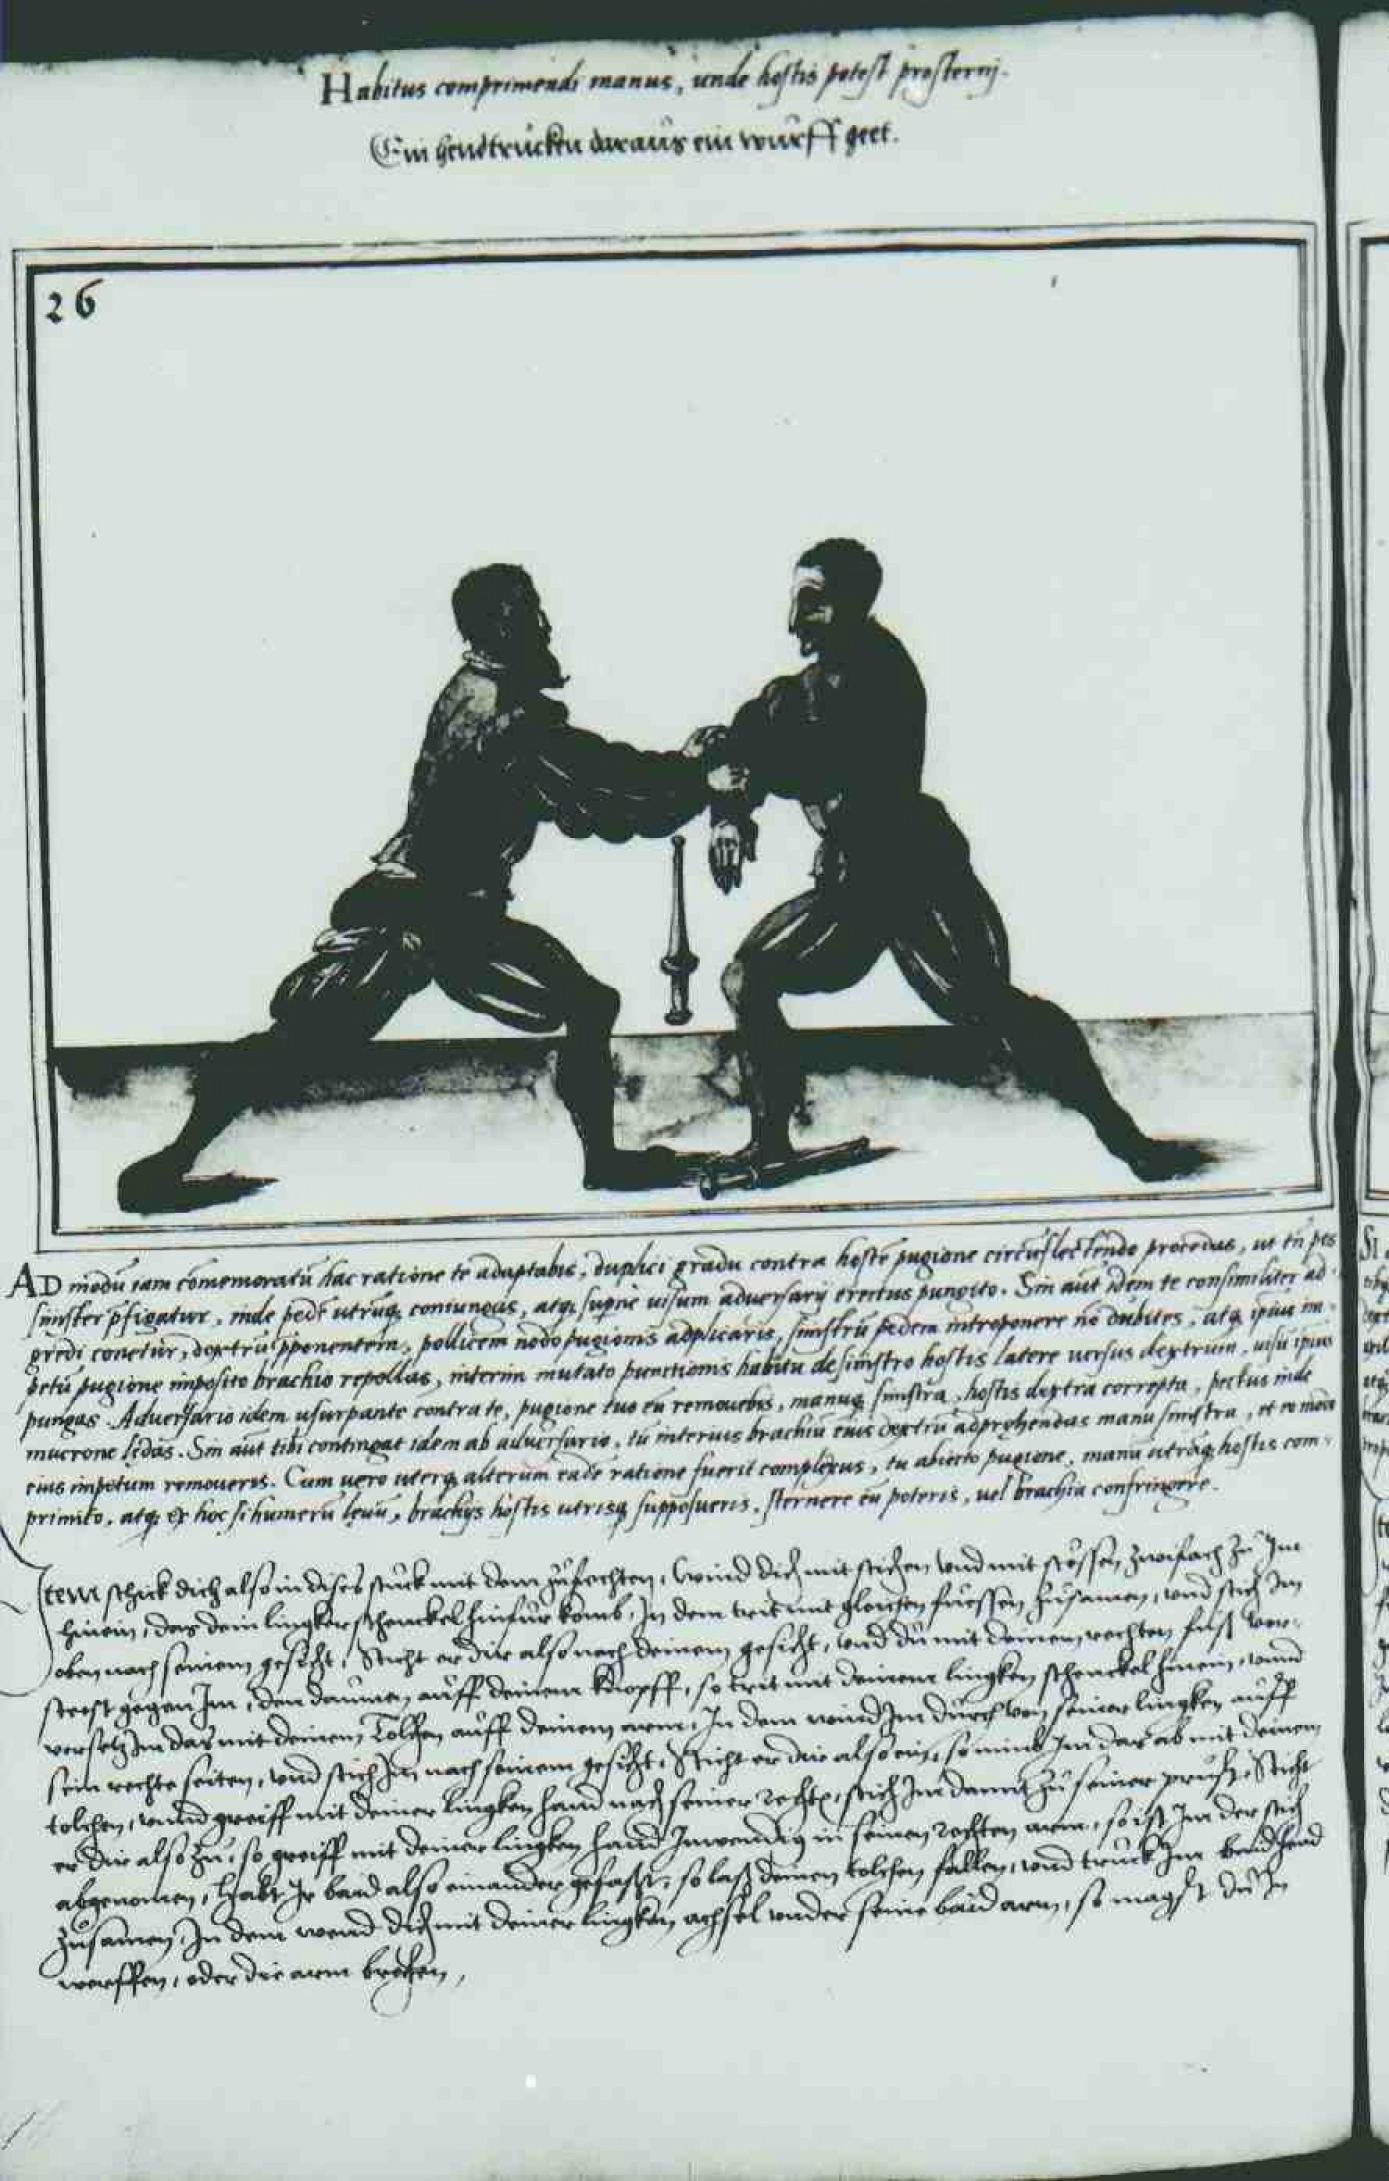 Habitus comprimendi manus, unde hostis potest prosternj.
Ein hendtrucken daraus ein wurff geet.
26
AD modū iam cōmemoratū hac ratione te adaptabis, duplici gradu contra hostē pugione circūflectendo procedas, ut tn̄ pes
sinister p̄figatur, inde pedē utrūq; coniungas, atq; supne uisum aduersarij erectus pungito. Sin aūt idem te consimiliter ad-
gredi conetur, dextrū p̄ponentem, pollicem nodo pugionis adplicaris, sinistrū pedem introponere nō dubites, atq; ipsius im-
petū pugione imposito brachio repellas, interim mutato punctionis habitu de sinistro hostis latere uersus dextrum, uisū ipsius
pungas. Aduersario idem usurpante contra te, pugione tuo eū remouebis, manuq; sinistra, hostis dextra correpta, pectus inde
mucrone lędas. Sin aūt tibi contingat idem ab aduersario, tū interius brachiū eius dextrū adprehendas manu sinistra, et eo modo
eius impetum remoueris. Cum uero uterq; alterum eadē ratione fuerit complexus, tu abiecto pugione, manū utrāq; hostis com-
primito, atq; ex hoc si humerū lęuū, brachijs hostis utrisq; supposueris, sternere eū poteris, uel brachia confringere.
Item schick dich also in dises stuck mit dem zufechten, wind dich mit stichen vnd mit stossen zwifach zu Im
hinein, das dein lingker schenckel hinfur komb, In dem trit mit gleichen fuessen zusamen, vnd stich Im
oben nach seinem gesicht, Sticht er dir also nach deinem gesicht, vnd du mit deinem rechten fuß vor-
steest gegen Im, den daumen auff deinem knopff, so trit mit deinem lingken schenckel hinein, vnnd
versetz Im das mit deinem Tolchen auff deinem arm, In dem wind Im durch von seiner lingken auff
sein rechte seiten, vnd stich Im nach seinem gesicht, Sticht er dir also ein, so nimb Im das ab mit deinem
tolchen, vnnd greiff mit deiner lingken hand nach seiner rechten, stich Im damit zu seiner prust, Sticht
er dir also zu, so greiff mit deiner lingken hand Inwendig in seinen rechten arm, so ist Im der stich
abgenomen, habt Ir baid also einander gefasst, so laß deinen tolchen fallen, vnd truck Im baid hend
zusamen, In dem wend dich mit deiner lingken achsel vnder seine baid arm, so magst du In
werffen, oder die arm brechen,